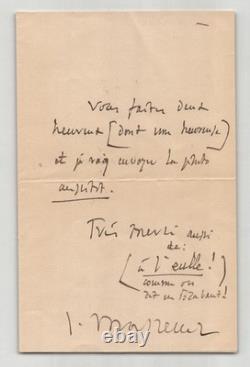 Vous faites deux
heureux (dont une heureuse)
et je vais envoyer la photo
aussitôt.
Très merci aussi
de:
(à l'
comme on
dit en
J. Massenet